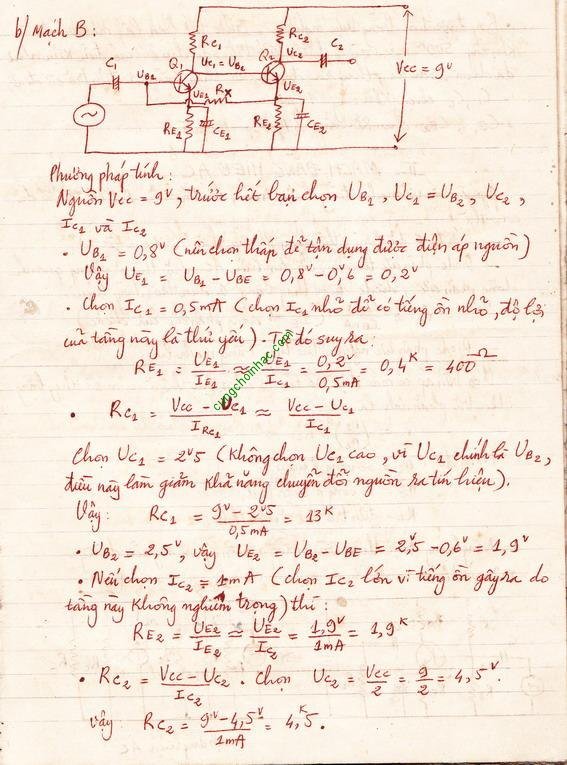 b/ Mạch B:
RC1 UC1 = UB2 RC2 UC2 C2
C1 UB1 Q1 Q2 VCC = 9V
UE1 Rx UE2
RE1 CE1 RE2 CE2
Phương pháp tính:
Nguồn VCC = 9V, trước hết bạn chọn UB1, UC1 = UB2, UC2,
IC1 và IC2
• UB1 = 0,8V (nên chọn thấp để tận dụng được điện áp nguồn)
Vậy UE1 = UB1 - UBE = 0,8V - 0V6 = 0,2V
• Chọn IC1 = 0,5mA (chọn IC1 nhỏ để có tiếng ồn nhỏ, độ lợi
của tầng này là thứ yếu). Từ đó suy ra:
RE1 = UE1/IE1 ≈ UE1/IC1 = 0,2V/0,5mA = 0,4K = 400Ω
cungchoinhac.com
• RC1 = VCC - UC1/IRC1 ≈ VCC - UC1/IC1
Chọn UC1 = 2V5 (Không chọn UC1 cao, vì UC1 chính là UB2,
điều này làm giảm khả năng chuyển đổi nguồn ra tín hiệu).
Vậy: RC1 = 9V - 2V5/0,5mA = 13K
• UB2 = 2,5V, vậy UE2 = UB2 - UBE = 2V5 - 0,6V = 1,9V
• Nếu chọn IC2 = 1mA (chọn IC2 lớn vì tiếng ồn gây ra do
tầng này không nghiêm trọng) thì:
RE2 = UE2/IE2 ≈ UE2/IC2 = 1,9V/1mA = 1,9K
• RC2 = VCC - UC2/IC2 . Chọn UC2 = VCC/2 = 9/2 = 4,5V.
Vậy: RC2 = 9V - 4,5V/1mA = 4K5.